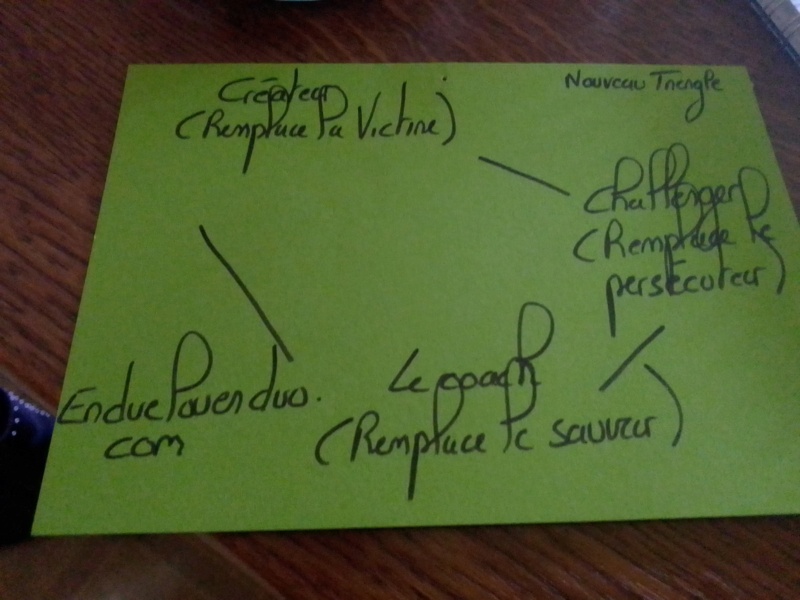 Nouveau Triangle
Créateur
(Remplace la Victime)
Challenger
(Remplace le
persécuteur)
Le coach
(Remplace le sauveur)
Enduelouenduo.
com